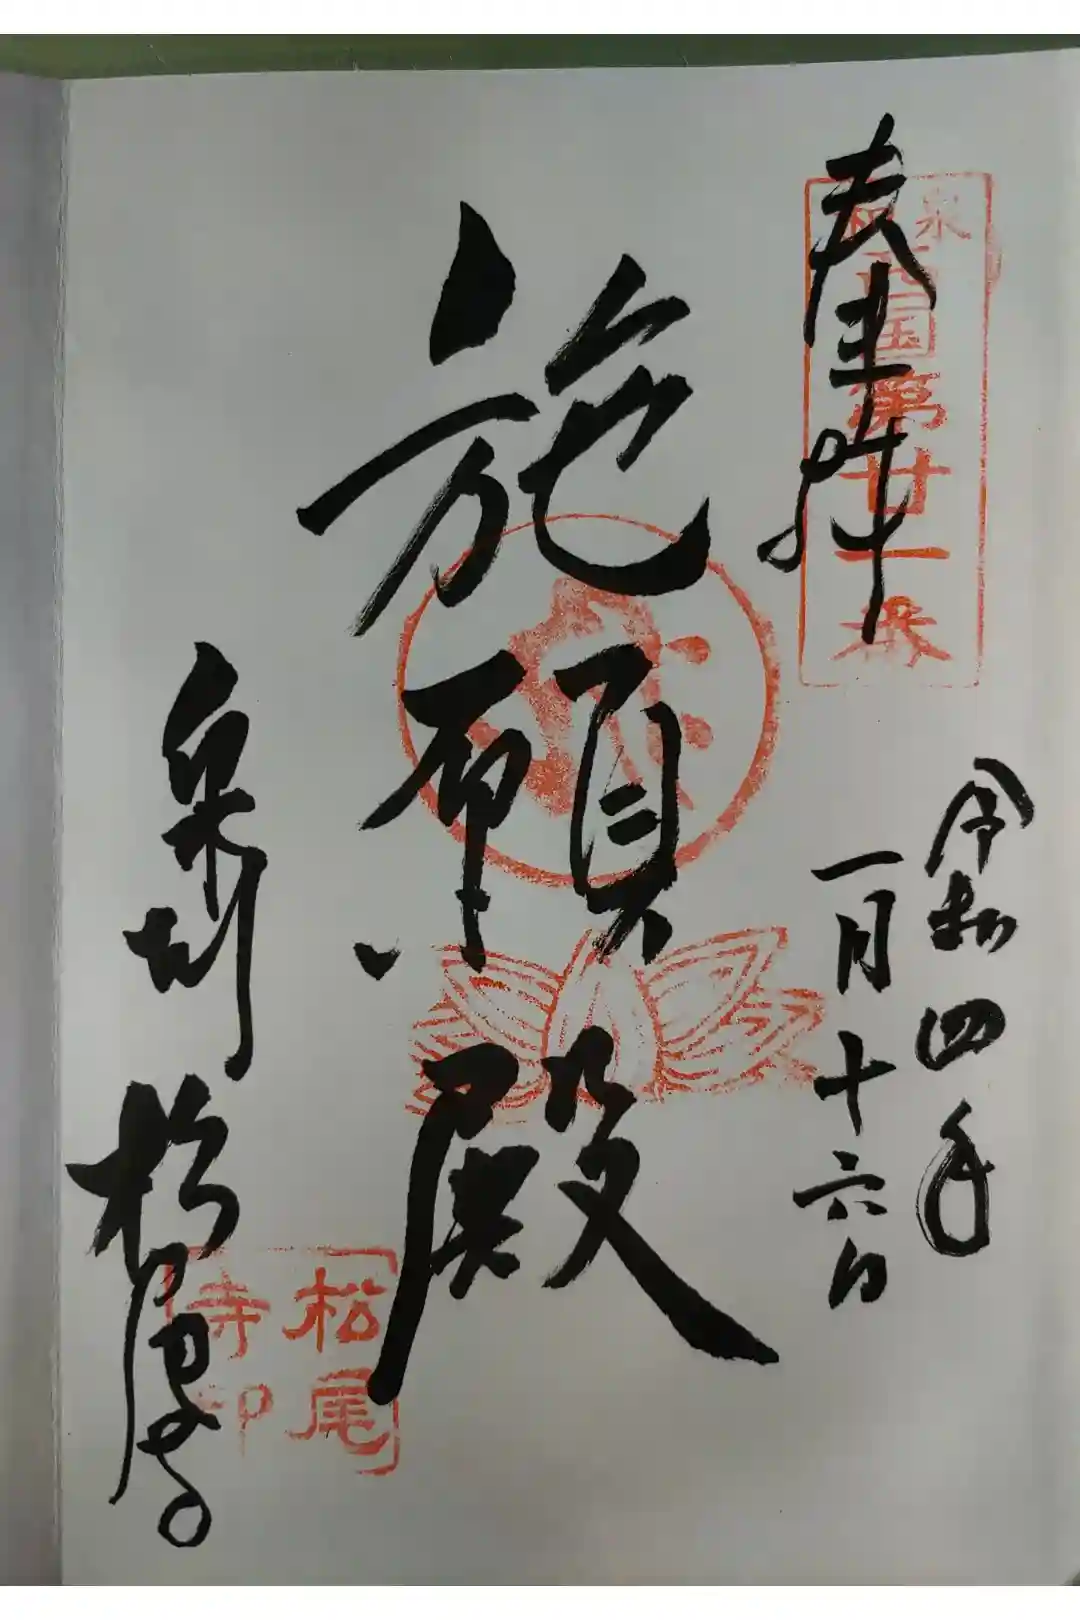 奉拝
泉
西国第廿一番
令和四年
一月十六日
施願殿
泉州 松尾寺
松尾
寺印